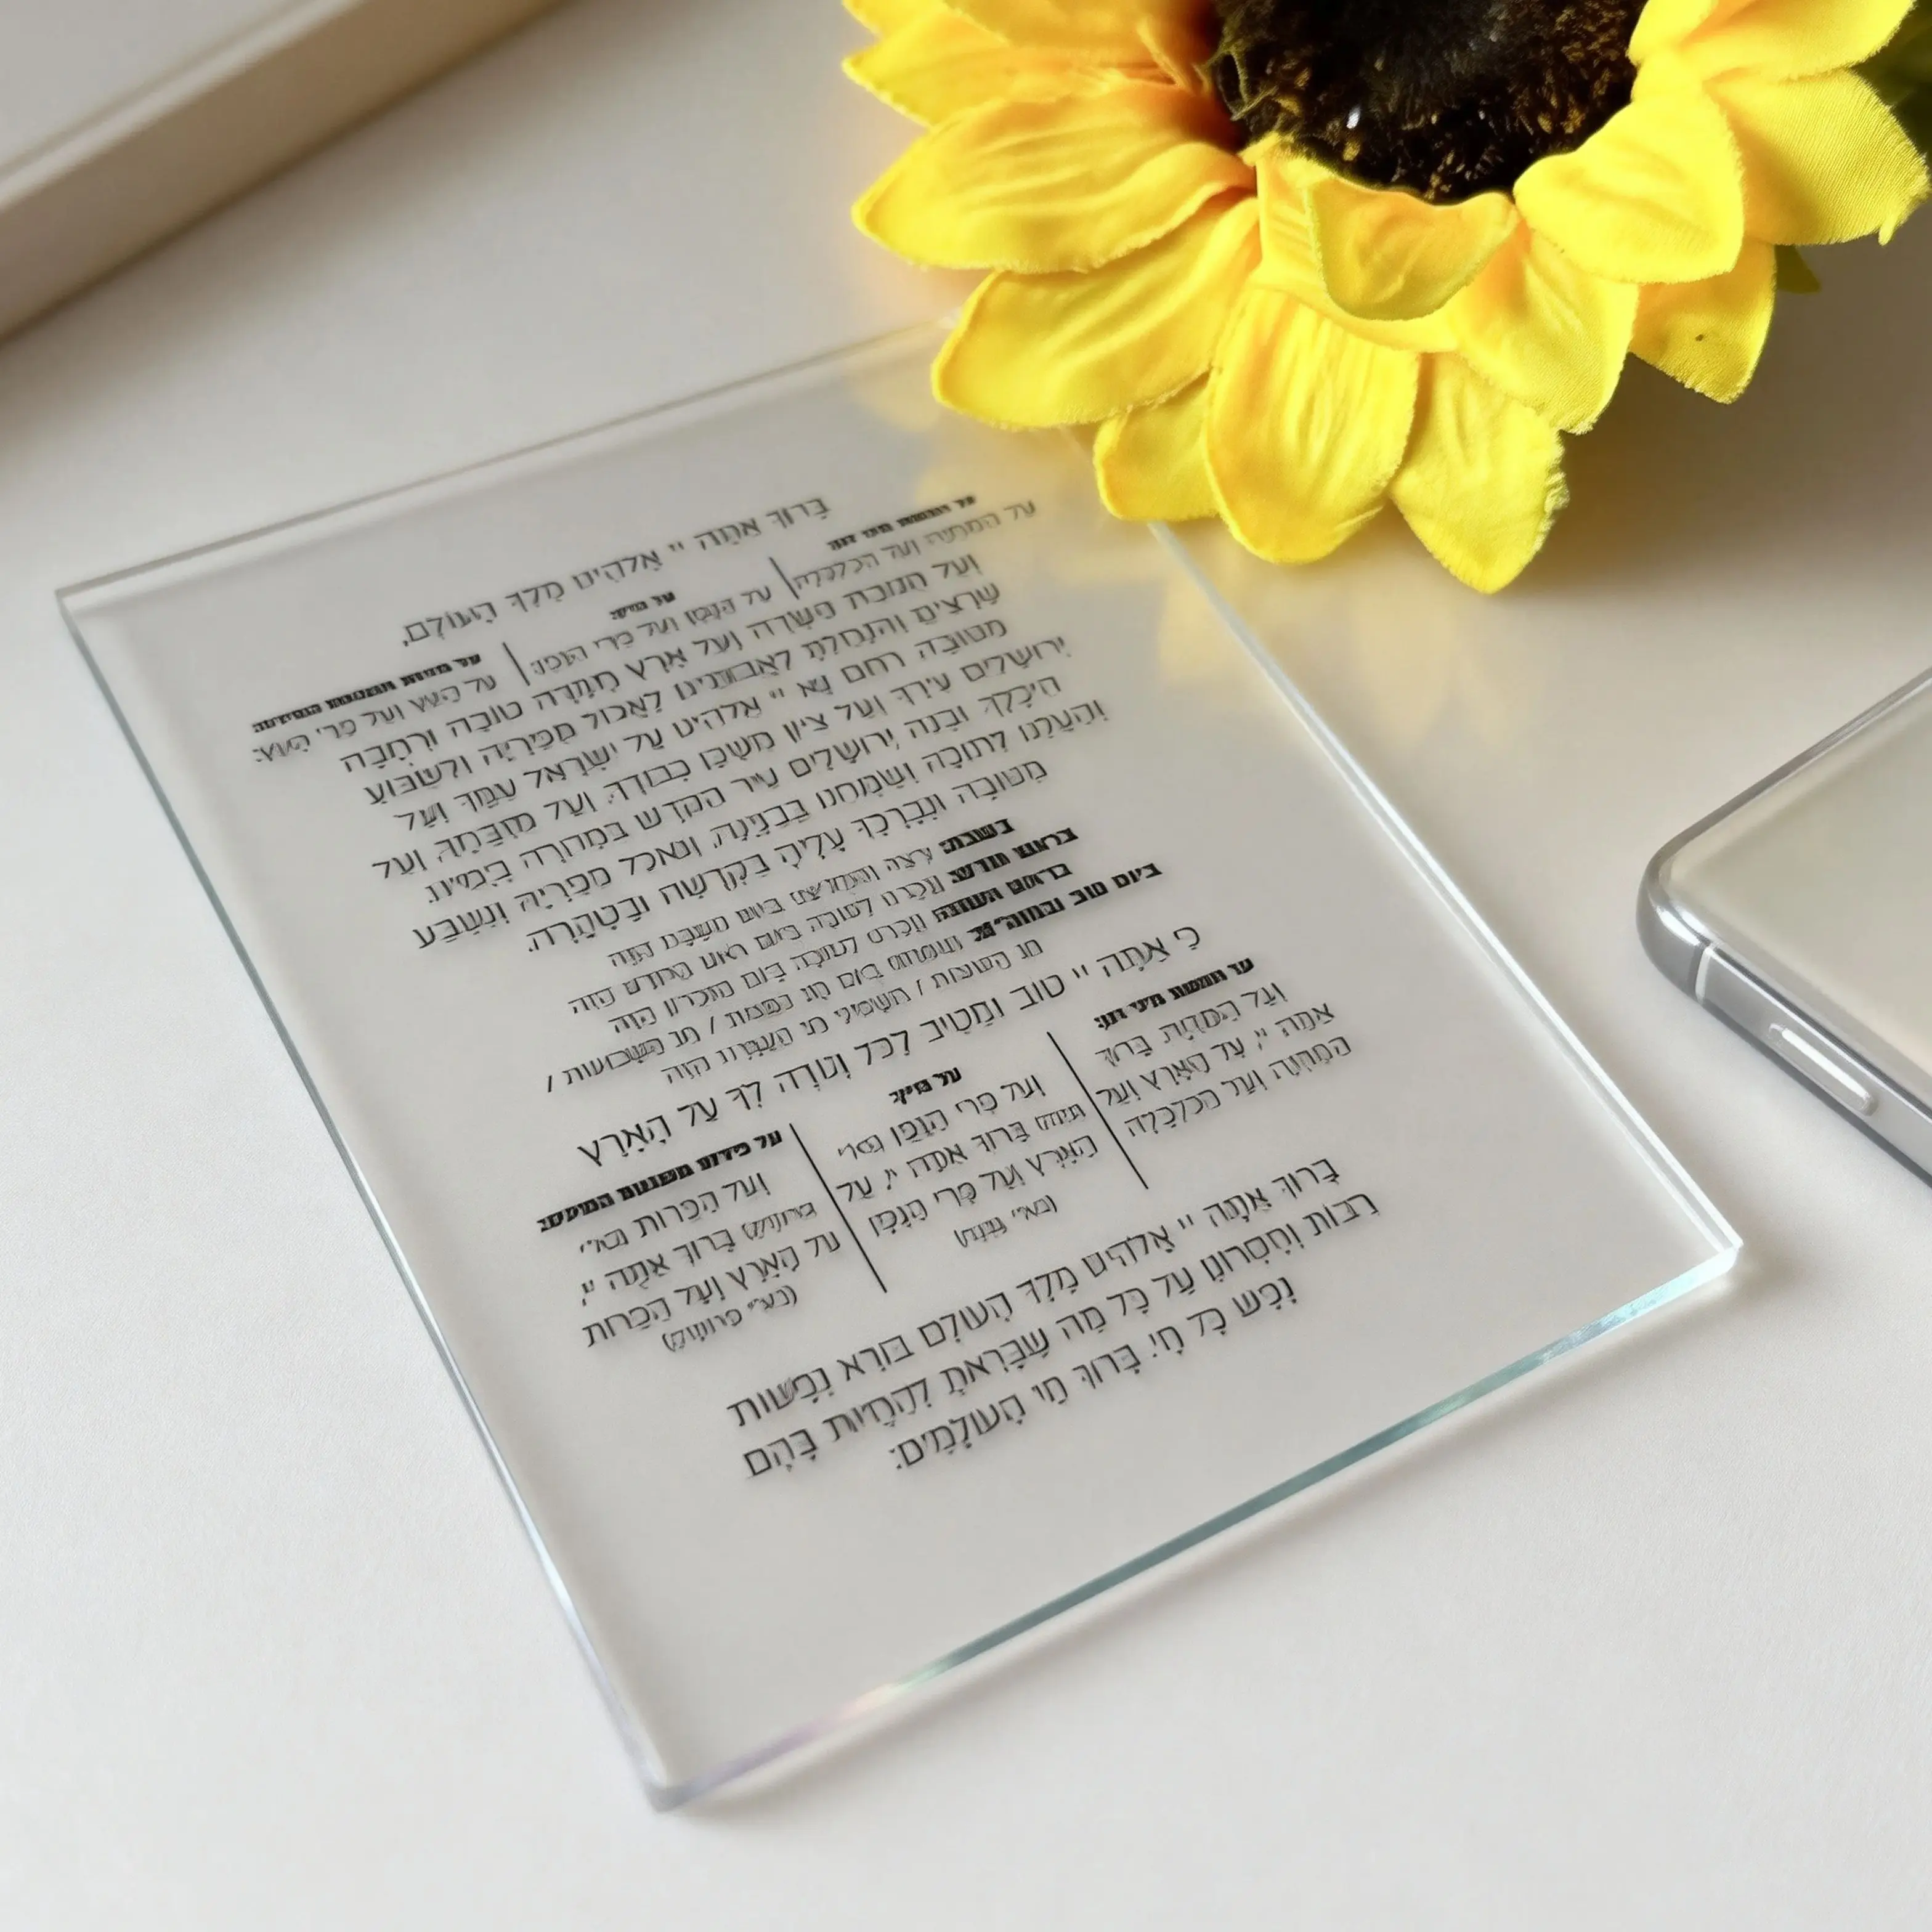 בָּרוּךְ אַתָּה יי אֱלֹהֵינוּ מֶלֶךְ הָעוֹלָם,
על חמשת מיני דגן:
עַל הַמִּחְיָה וְעַל הַכַּלְכָּלָה
על היין:
עַל הַגֶּפֶן וְעַל פְּרִי הַגֶּפֶן:
על פירות משבעת המינים:
עַל הָעֵץ וְעַל פְּרִי הָעֵץ:
וְעַל תְּנוּבַת הַשָּׂדֶה וְעַל אֶרֶץ חֶמְדָּה טוֹבָה וּרְחָבָה
שֶׁרָצִיתָ וְהִנְחַלְתָּ לַאֲבוֹתֵינוּ לֶאֱכוֹל מִפִּרְיָהּ וְלִשְׂבּוֹעַ
מִטּוּבָהּ רַחֵם נָא יי אֱלֹהֵינוּ עַל יִשְׂרָאֵל עַמֶּךָ וְעַל
יְרוּשָׁלַיִם עִירֶךָ וְעַל צִיּוֹן מִשְׁכַּן כְּבוֹדֶךָ, וְעַל מִזְבַּחֶךָ, וְעַל
הֵיכָלֶךָ וּבְנֵה יְרוּשָׁלַיִם עִיר הַקֹּדֶשׁ בִּמְהֵרָה בְיָמֵינוּ.
וְהַעֲלֵנוּ לְתוֹכָהּ וְשַׂמְּחֵנוּ בְּבִנְיָנָהּ, וְנֹאכַל מִפִּרְיָהּ וְנִשְׂבַּע
מִטּוּבָהּ וּנְבָרֶכְךָ עָלֶיהָ בִּקְדֻשָּׁה וּבְטָהֳרָה.
בשבת: רְצֵה וְהַחֲלִיצֵנוּ בְּיוֹם הַשַּׁבָּת הַזֶּה
בראש חודש: וְזָכְרֵנוּ לְטוֹבָה בְּיוֹם רֹאשׁ הַחֹדֶשׁ הַזֶּה
בראש השנה: וְזָכְרֵנוּ לְטוֹבָה בְּיוֹם הַזִּכָּרוֹן הַזֶּה
ביום טוב ובחוה״מ: וְשַׂמְּחֵנוּ בְּיוֹם חַג הַמַּצּוֹת / חַג הַשָּׁבוּעוֹת /
חַג הַסֻּכּוֹת / הַשְּׁמִינִי חַג הָעֲצֶרֶת הַזֶּה
כִּי אַתָּה יי טוֹב וּמֵטִיב לַכֹּל וְנוֹדֶה לְּךָ עַל הָאָרֶץ
על חמשת מיני דגן:
וְעַל הַמִּחְיָה. בָּרוּךְ
אַתָּה יי, עַל הָאָרֶץ וְעַל
הַמִּחְיָה וְעַל הַכַּלְכָּלָה
על היין:
וְעַל פְּרִי הַגֶּפֶן
בָּרוּךְ אַתָּה יי, עַל
הָאָרֶץ וְעַל פְּרִי הַגֶּפֶן
על פירות משבעת המינים:
וְעַל הַפֵּרוֹת
בָּרוּךְ אַתָּה יי,
עַל הָאָרֶץ וְעַל הַפֵּרוֹת
בָּרוּךְ אַתָּה יי אֱלֹהֵינוּ מֶלֶךְ הָעוֹלָם בּוֹרֵא נְפָשׁוֹת
רַבּוֹת וְחֶסְרוֹנָן עַל כָּל מַה שֶּׁבָּרָאתָ לְהַחֲיוֹת בָּהֶם
נֶפֶשׁ כָּל חָי. בָּרוּךְ חֵי הָעוֹלָמִים: